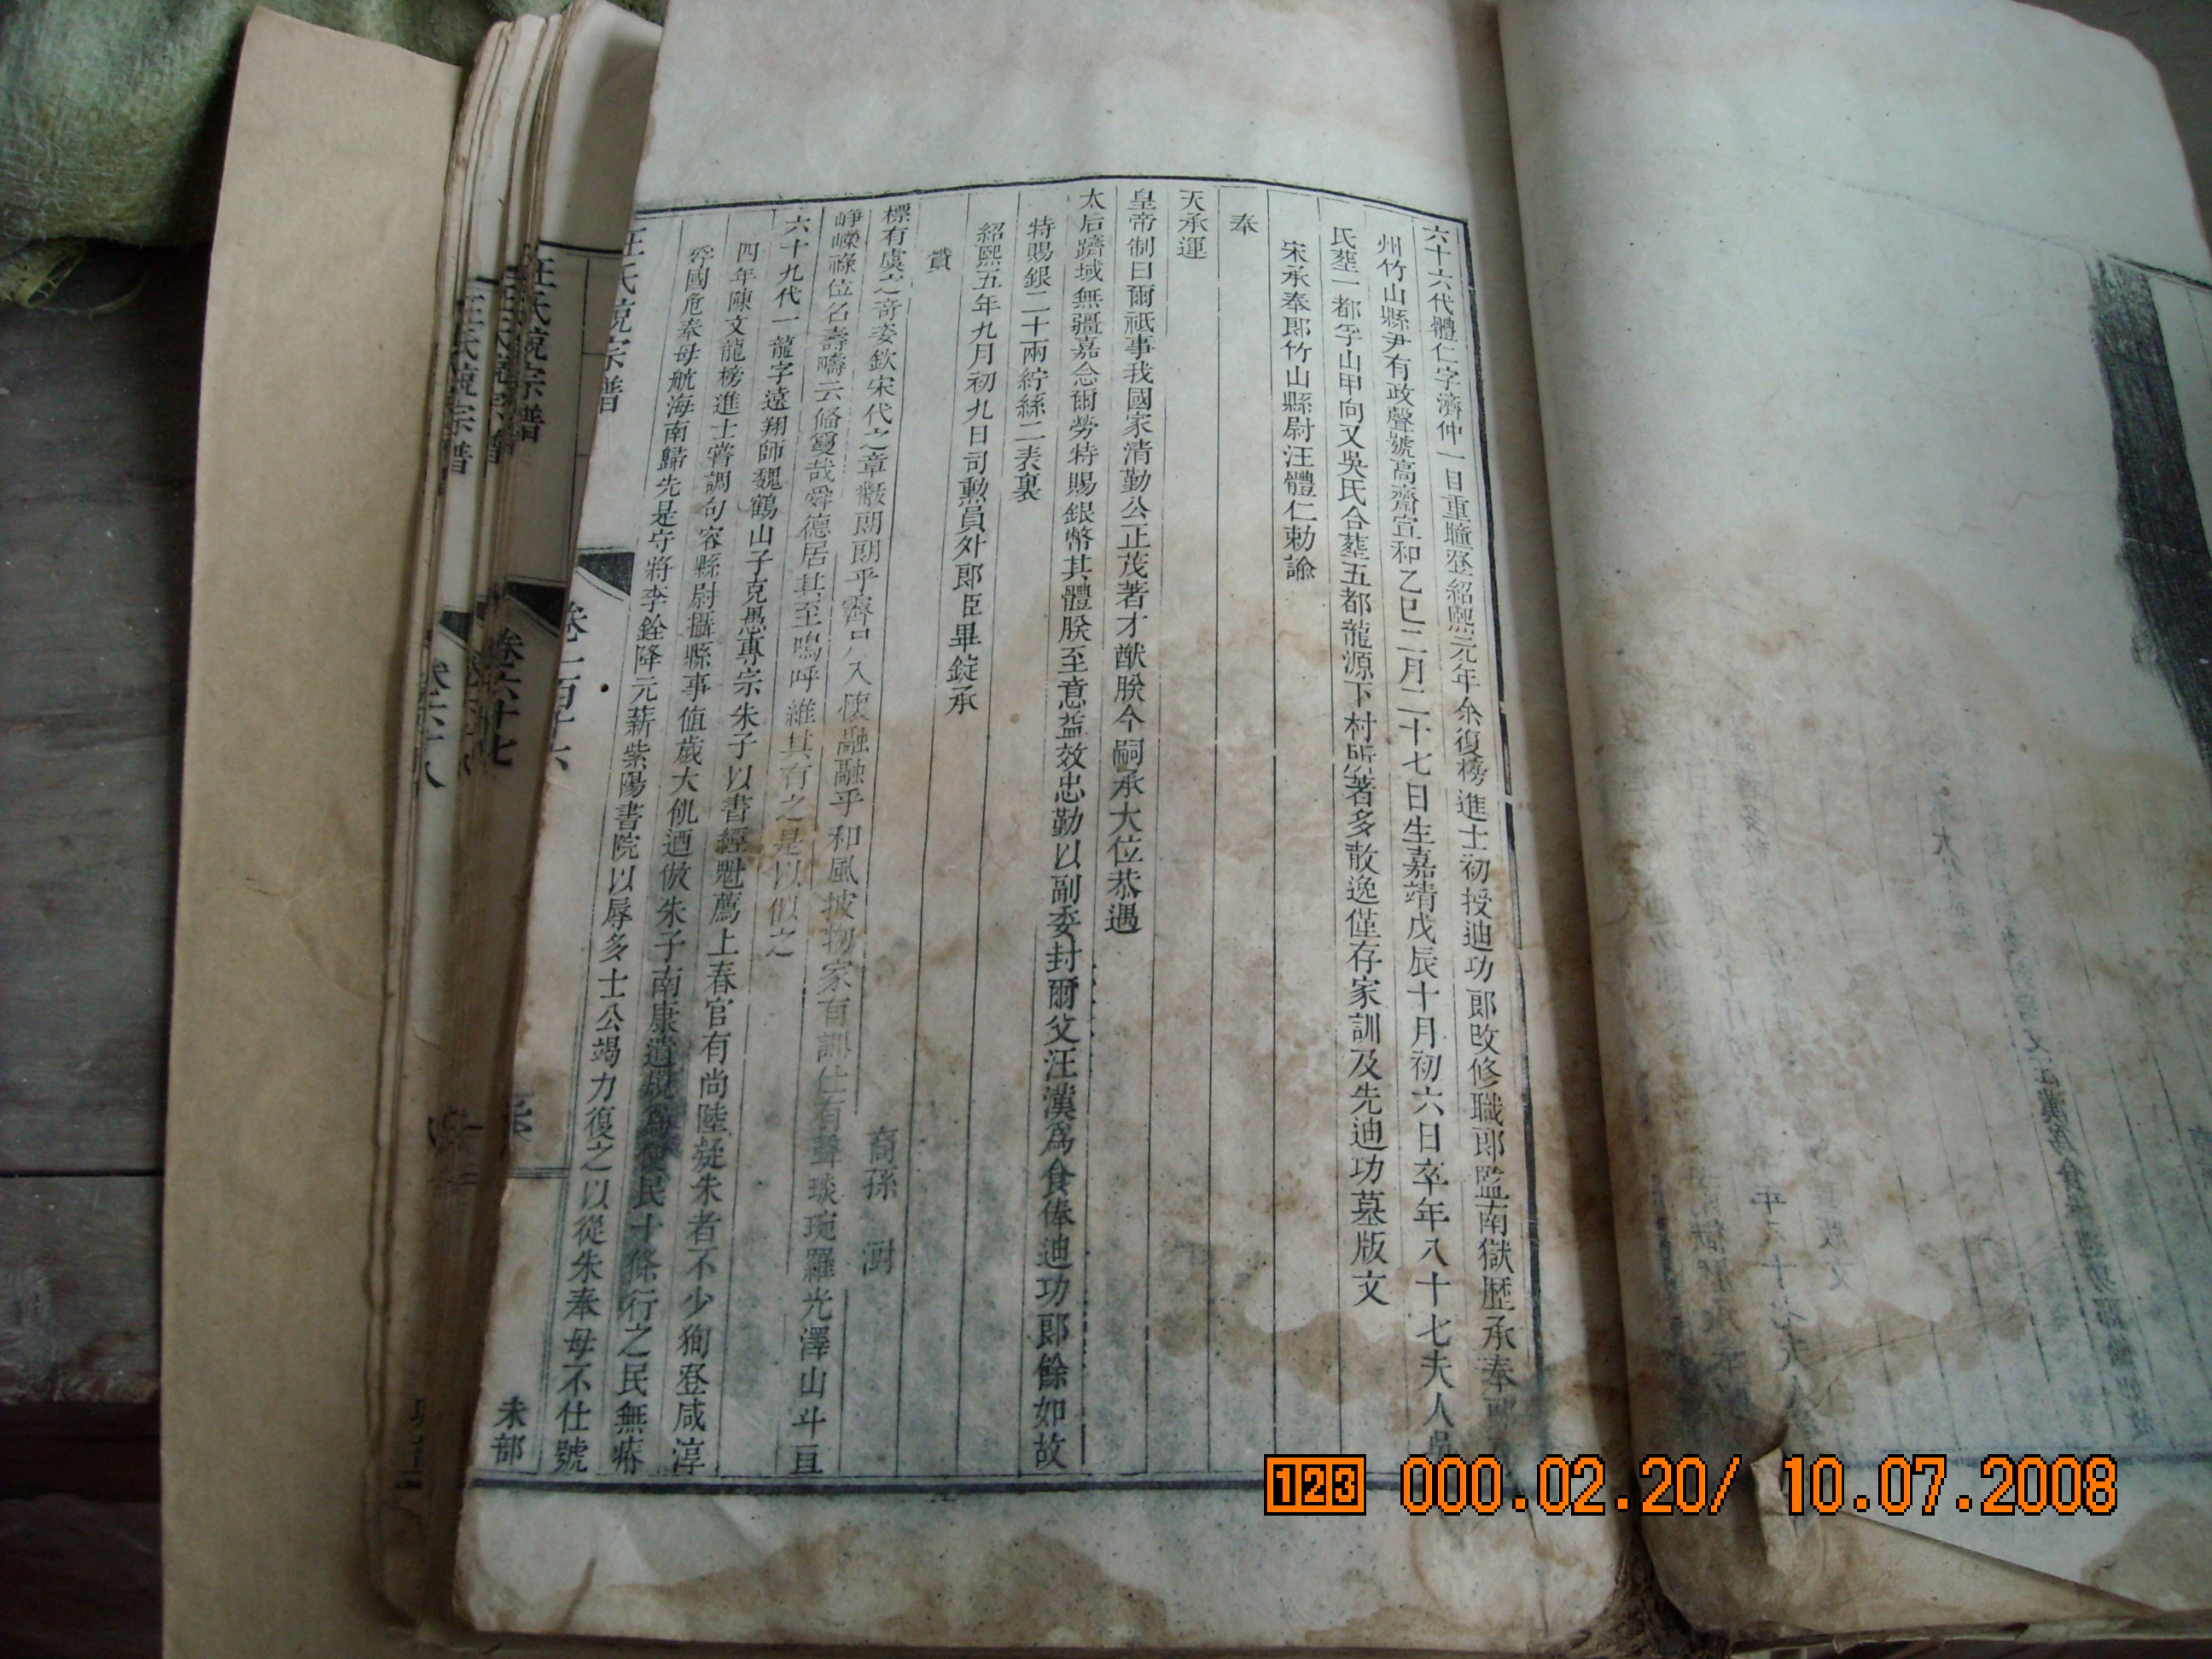 六十六代體仁字濟仲一目重瞳登紹熙元年余復榜進士初授迪功郎改修職郎監南獄歷承奉郎
州竹山縣尹有政聲號高齋宣和乙巳二月二十七日生嘉靖戊辰十月初六日卒年八十七夫人吳
氏塟一都孚山甲向又吳氏合塟五都龍源下村所著多散逸僅存家訓及先迪功墓版文
宋承奉郎竹山縣尉汪體仁勅諭
奉
天承運
皇帝制曰爾祗事我國家清勤公正茂著才猷朕今嗣承大位恭遇
太后躋域無疆嘉念爾勞特賜銀幣其體朕至意益效忠勤以副委封爾父汪漢爲食俸迪功郎餘如故
特賜銀二十兩紵絲二表裏
紹熙五年九月初九日司勲員外郎臣畢錠承
贊 裔孫 澍
標有虞之奇姿欽宋代之章黻朗朗乎霽月入懷融融乎和風披物家有訓仕有聲琰琬羅光澤山斗亘
崢嶸祿位名壽疇云脩敻哉舜德居其至嗚呼維其有之是以似之
六十九代一龍字遠翔師魏鶴山子克愚專宗朱子以書經魁薦上春官有尚陸疑朱者不少狥登咸淳
四年陳文龍榜進士嘗調句容縣尉攝縣事值歲大饑迺倣朱子南康遺規爲便民十條行之民無瘠
國危奉母航海南歸先是守將李銓降元薪紫陽書院以辱多士公竭力復之以從朱奉母不仕號
汪氏統宗譜 卷一百十六 未部
汪氏統宗譜 卷六十七
汪氏統宗譜
汪氏統宗譜
123 000.02.20/ 10.07.2008